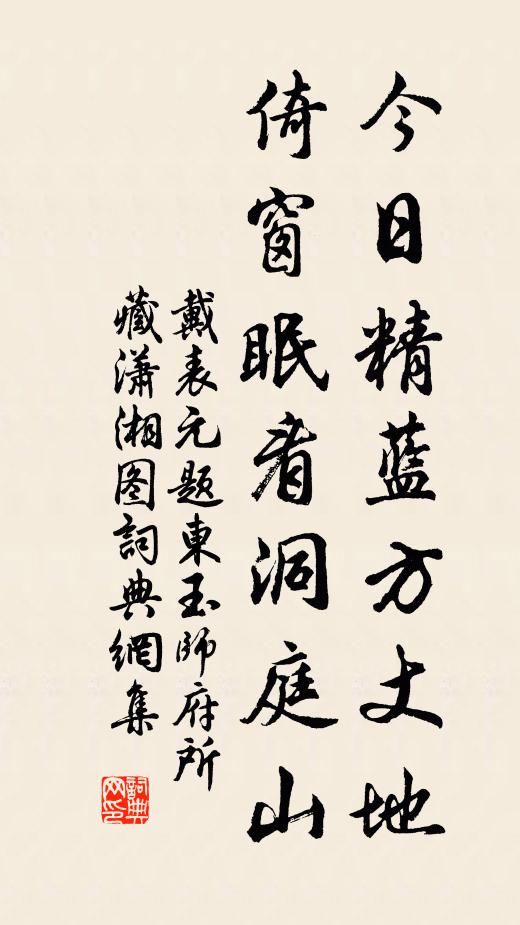 今日精蓝方丈地
倚窗眠看洞庭山
戴表元题東玉師府所
藏瀟湘图詞典網集
詞典
网印